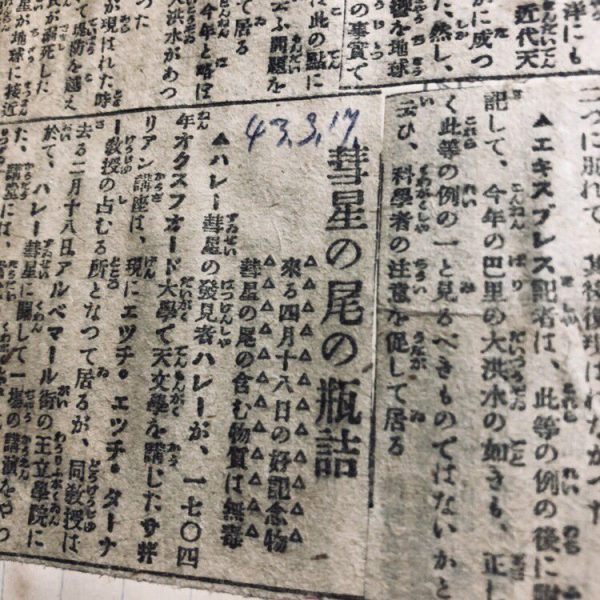 洋にも
近代天
かに成つ
た、然し、
響を地球
の事實で
は此の點に
ふ問題を
て居る
今年と略ぼ
大洪水があつ
つた
が現はれた時
て堤防を越え
民が溺死した
星が地球に接近
▲エキスプレス記者は、此等の例の後に附
記して、今年の巴里の大洪水の如きも、正し
く此等の例の一と見るべきものではないかと
云ひ、科學者の注意を促して居る
43.3.17
彗星の尾の瓶詰
來る四月十八日の好記念物
彗星の尾の含む物質は無毒
▲ハレー彗星の發見者ハレーが、一七〇四
年オクスフオード大學で天文學を講じたサヰ
リアン講座は、現にエツチ・エツチ・ターナ
ー教授の占むる所となつて居るが、同教授は
去る二月十八日アルベマール街の王立學院に
於て、ハレー彗星に關して一塲の講演をやつ
た、講堂には、